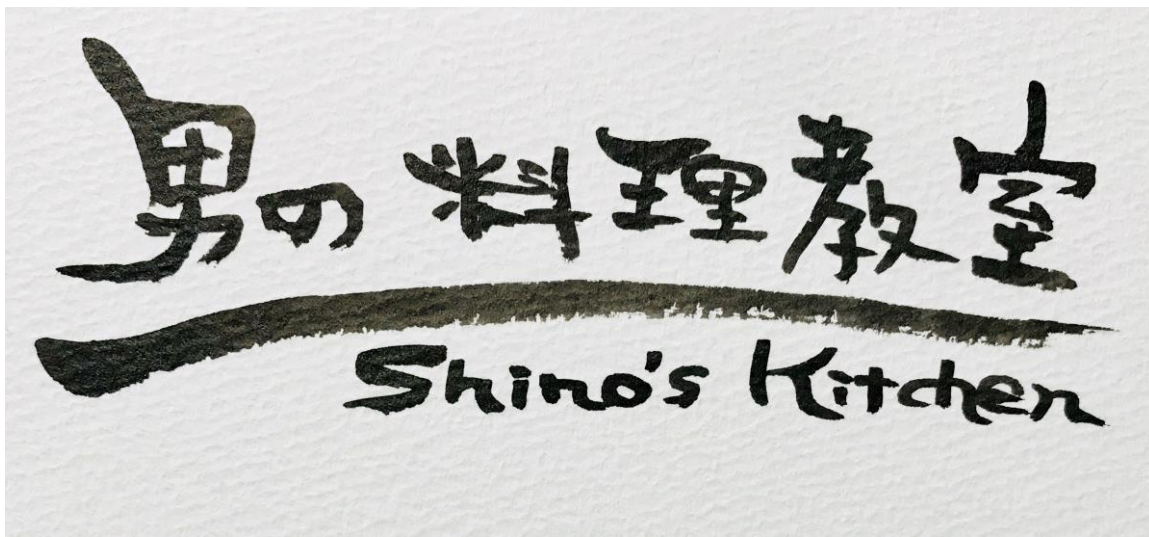 男の料理教室
Shino's Kitchen